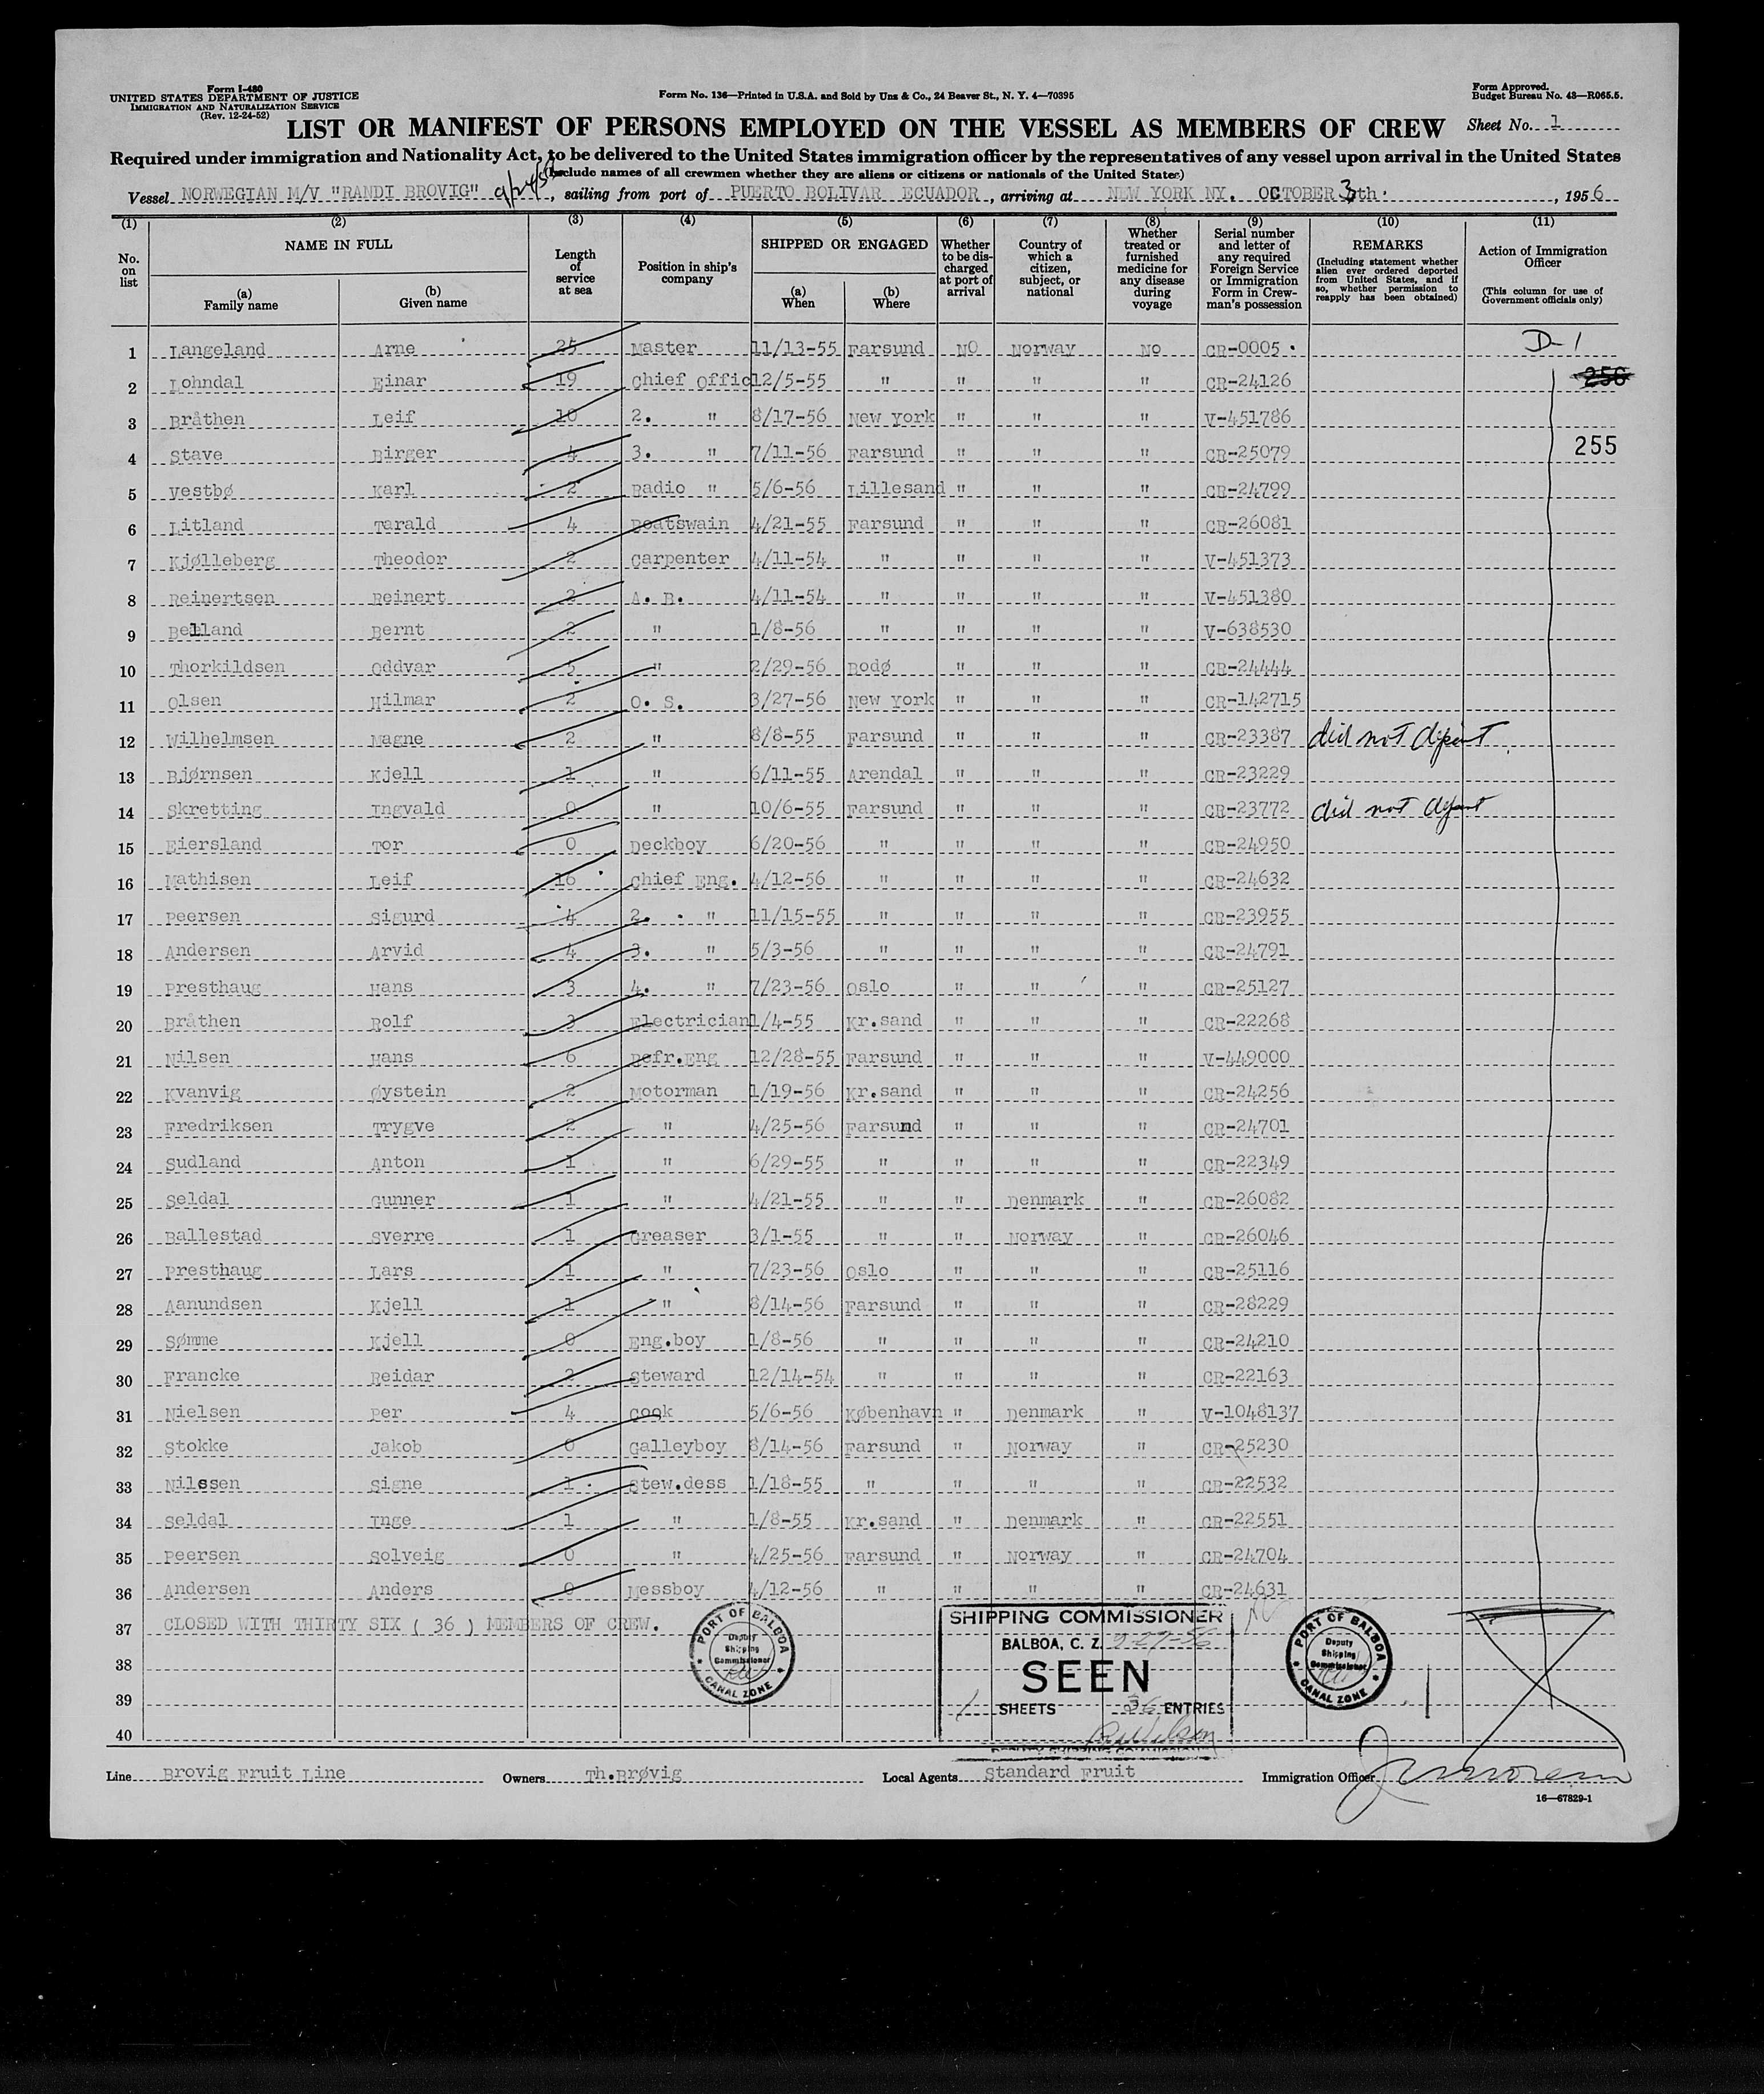 Form I-480
UNITED STATES DEPARTMENT OF JUSTICE
IMMIGRATION AND NATURALIZATION SERVICE
(Rev. 12-24-52)
Form No. 136—Printed in U.S.A. and Sold by Unz & Co., 24 Beaver St., N. Y. 4—70395
Form Approved.
Budget Bureau No. 43—R065.5.
LIST OR MANIFEST OF PERSONS EMPLOYED ON THE VESSEL AS MEMBERS OF CREW Sheet No. 1
Required under immigration and Nationality Act, to be delivered to the United States immigration officer by the representatives of any vessel upon arrival in the United States
(Include names of all crewmen whether they are aliens or citizens or nationals of the United States)
Vessel NORWEGIAN M/V "RANDI BROVIG", sailing from port of PUERTO BOLIVAR ECUADOR, arriving at NEW YORK NY. OCTOBER 3th, 1956
(1) (2) (3) (4) (5) (6) (7) (8) (9) (10) (11)
No. on list
NAME IN FULL
(a) Family name
(b) Given name
Length of service at sea
Position in ship's company
SHIPPED OR ENGAGED
(a) When
(b) Where
Whether to be discharged at port of arrival
Country of which a citizen, subject, or national
Whether treated or furnished medicine for any disease during voyage
Serial number and letter of any required Foreign Service or Immigration Form in Crewman's possession
REMARKS
(Including statement whether alien ever ordered deported from United States, and if so, whether permission to reapply has been obtained)
Action of Immigration Officer
(This column for use of Government officials only)
1 Langeland Arne 25 Master 11/13-55 Farsund NO Norway No CR-0005 D-1
2 Lohndal Einar 19 Chief Offic 12/5-55 " " " " CR-24126 256
3 Bråthen Leif 10 2. " 8/17-56 New York " " " V-451786
4 Stave Birger 4 3. " 7/11-56 Farsund " " " CR-25079 255
5 Vestbø Karl 2 Radio " 5/6-56 Lillesand " " " CR-24799
6 Litland Tarald 4 Boatswain 4/21-55 Farsund " " " CR-26081
7 Kjølleberg Theodor 2 Carpenter 4/11-54 " " " " V-451373
8 Reinertsen Reinert 2 A. B. 4/11-54 " " " " V-451380
9 Belland Bernt 2 " 1/8-56 " " " " V-638530
10 Thorkildsen Oddvar 5 " 2/29-56 Bodø " " " CR-24444
11 Olsen Hilmar 2 O. S. 3/27-56 New York " " " CR-142715
12 Wilhelmsen Magne 2 " 8/8-55 Farsund " " " CR-23387 did not depart
13 Bjørnsen Kjell 1 " 6/11-55 Arendal " " " CR-23229
14 Skretting Ingvald 0 " 10/6-55 Farsund " " " CR-23772 did not depart
15 Eiersland Tor 0 Deckboy 6/20-56 " " " " CR-24950
16 Mathisen Leif 16 Chief Eng. 4/12-56 " " " " CR-24632
17 Peersen Sigurd 4 2. " 11/15-55 " " " " CR-23955
18 Andersen Arvid 4 3. " 5/3-56 " " " " CR-24791
19 Presthaug Hans 3 4. " 7/23-56 Oslo " " " CR-25127
20 Bråthen Rolf 3 Electrician 1/4-55 Kr.sand " " " CR-22268
21 Nilsen Hans 6 Refr.Eng 12/28-55 Farsund " " " V-449000
22 Kvanvig Øystein 2 Motorman 1/19-56 Kr.sand " " " CR-24256
23 Fredriksen Trygve 2 " 4/25-56 Farsund " " " CR-24701
24 Sudland Anton 1 " 6/29-55 " " " " CR-22349
25 Seldal Gunner 1 " 4/21-55 " " Denmark " CR-26082
26 Ballestad Sverre 1 Greaser 3/1-55 " " Norway " CR-26046
27 Presthaug Lars 1 " 7/23-56 Oslo " " " CR-25116
28 Aanundsen Kjell 1 " 8/14-56 Farsund " " " CR-28229
29 Sømme Kjell 0 Eng.boy 1/8-56 " " " " CR-24210
30 Francke Reidar 2 Steward 12/14-54 " " " " CR-22163
31 Nielsen Per 4 Cook 5/6-56 København " Denmark " V-1048137
32 Stokke Jakob 0 Galleyboy 8/14-56 Farsund " Norway " CR-25230
33 Nilssen Signe 1 Stew.dess 1/18-55 " " " " CR-22532
34 Seldal Inge 1 " 1/8-55 Kr.sand " Denmark " CR-22551
35 Peersen Solveig 0 " 4/25-56 Farsund " Norway " CR-24704
36 Andersen Anders 0 Messboy 4/12-56 " " " " CR-24631
37 CLOSED WITH THIRTY SIX ( 36 ) MEMBERS OF CREW.
38
39
40
PORT OF BALBOA
Deputy Shipping Commissioner
CANAL ZONE
SHIPPING COMMISSIONER
BALBOA, C. Z. 9-27-56
SEEN
1 SHEETS 36 ENTRIES
R Wilson
DEPUTY SHIPPING COMMISSIONER
PORT OF BALBOA
Deputy Shipping Commissioner
CANAL ZONE
Line Brovig Fruit Line Owners Th.Brøvig Local Agents Standard Fruit Immigration Officer
16—67829-1